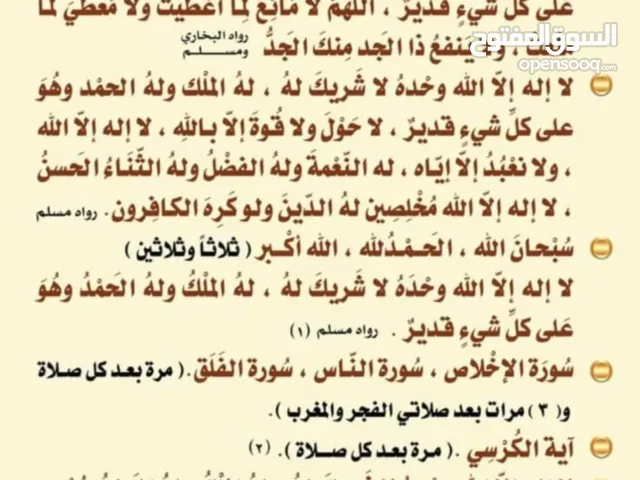 على كل شيءٍ قديرٌ ، اللهم لا مانع لما أعطيت ولا معطي لما
، ولا يَنفعُ ذا الجَد مِنكَ الجَدُّ رواه البخاري ومسلم
السوق المفتوح
opensooq.com
لا إله إلاّ الله وحْدهُ لا شَريكَ لهُ ، لهُ الملْك ولهُ الحمْد وهُوَ
على كلِّ شيءٍ قديرٌ ، لا حَوْلَ ولا قُوةَ إلاّ بـاللهِ ، لا إلهَ إلاّ الله
، ولا نعْبُدُ إلاّ إيّاه ، له النّعْمةَ ولهُ الفضْلُ ولهُ الثّنَاءُ الحَسنُ
، لا إلهَ إلاّ الله مُخْلِصين لهُ الدّينَ ولو كَرِهَ الكافِرون. رواه مسلم
سُبْحانَ الله ، الحَـمْـدُلله ، الله أكْـبر ( ثلاثاً وثلاثين )
لا إله إلاّ الله وحْدَهُ لا شَريكَ لهُ ، لهُ الملكُ ولهُ الحَمْدُ وهُوَ
عَلى كلِّ شيءٍ قديرٌ . رواه مسلم (١)
سُورَة الإخْلاص ، سُورَة النّاس ، سُورة الفَلَق.( مرة بـعد كل صـلاة
و( ٣ ) مرات بعد صلاتي الفجر والمغرب ).
آية الكُرْسِي .( مرة بعد كل صلاة ). (٢)